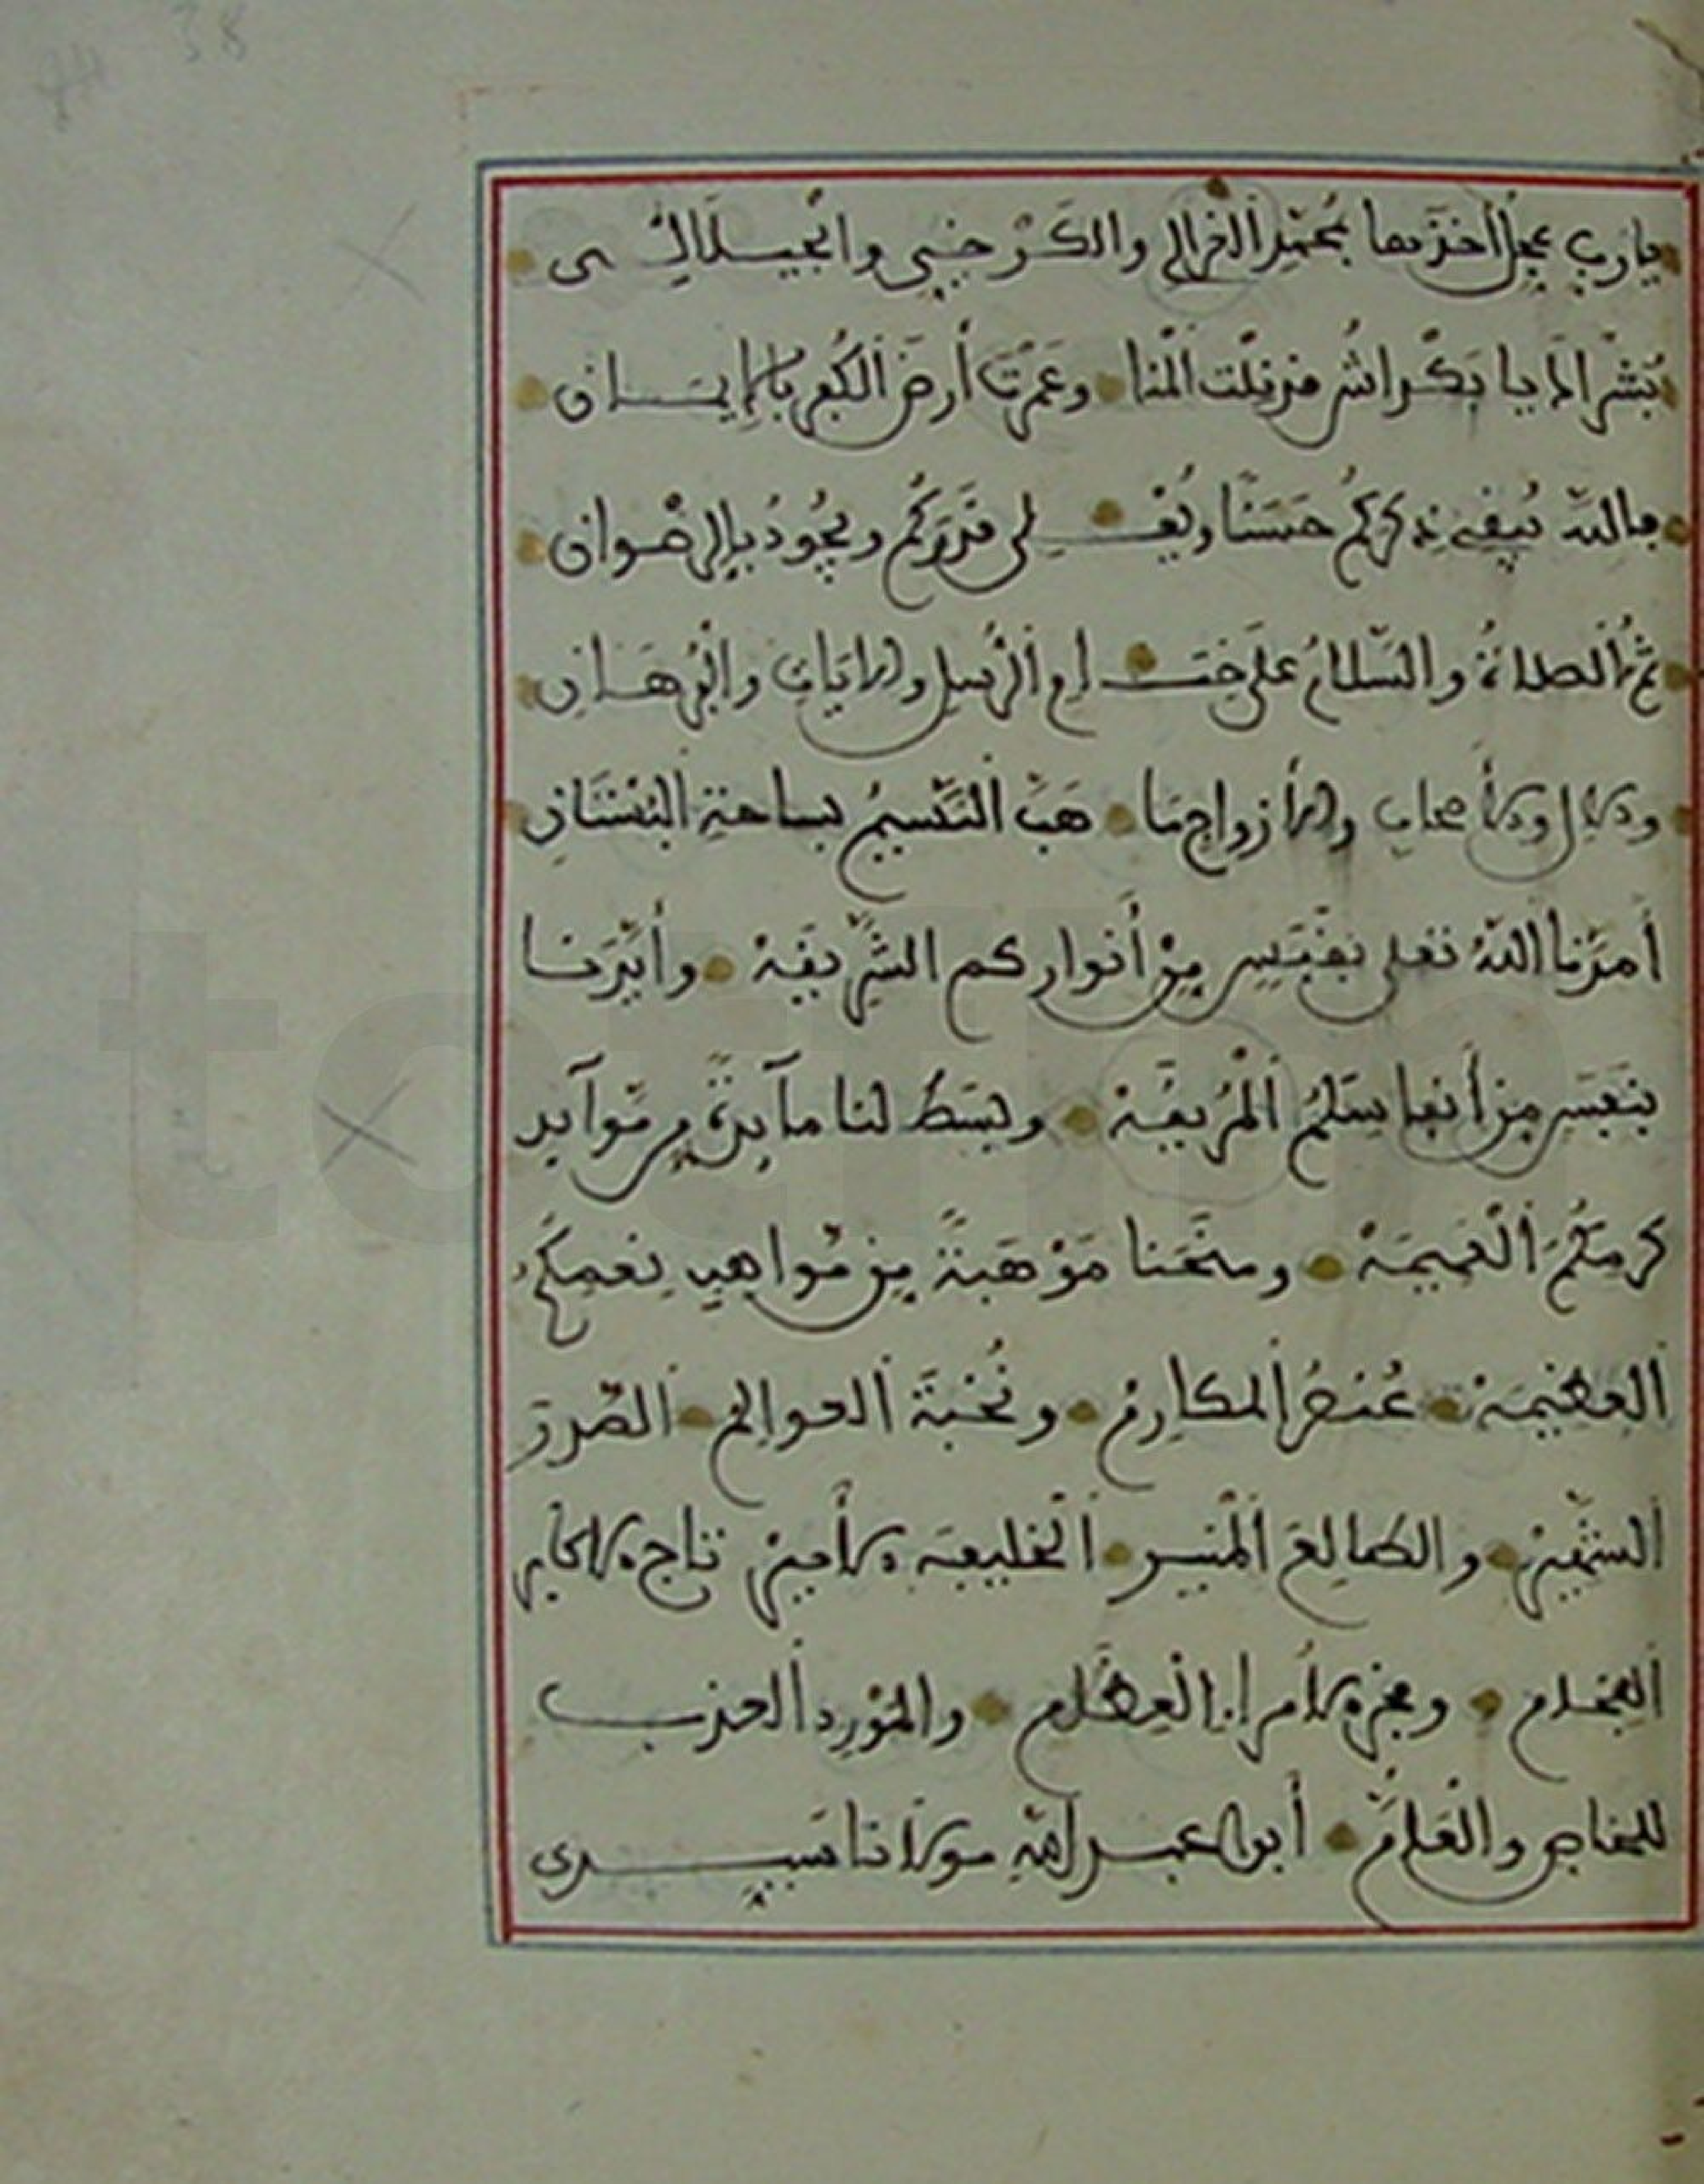 38
يا رب عجل أخذ بها بمحمد الغزالي والكرخي والجيلاني
بشراك يا بكراش قد نلت المنا وعمرت أرض الكفر بالإيمان
فالله يبقي ذكركم حسنا ويعلي قدركم ويجود بالرضوان
ثم الصلاة والسلام على ختام الرسل والايات والبرهان
والال والأصحاب والأزواج ما هب النسيم بساحة البستان
أمدنا الله تعلى بقبس من أنواركم الشريفة وأيدنا
بنفس من أنفاسكم المريفة وبسط لنا مآيدة من موآيد
كرمكم العميمة ومنحنا موهبة من مواهب نعمكم
العظيمة عنصر المكارم ونخبة العوالم الطود
الثمين والطالع المنير الخليفة الأمين تاج الأكابر
الفخام وفخر الأمراء العظام والمورد العذب
للخاص والعام أبو عبد الله مولانا سيدي